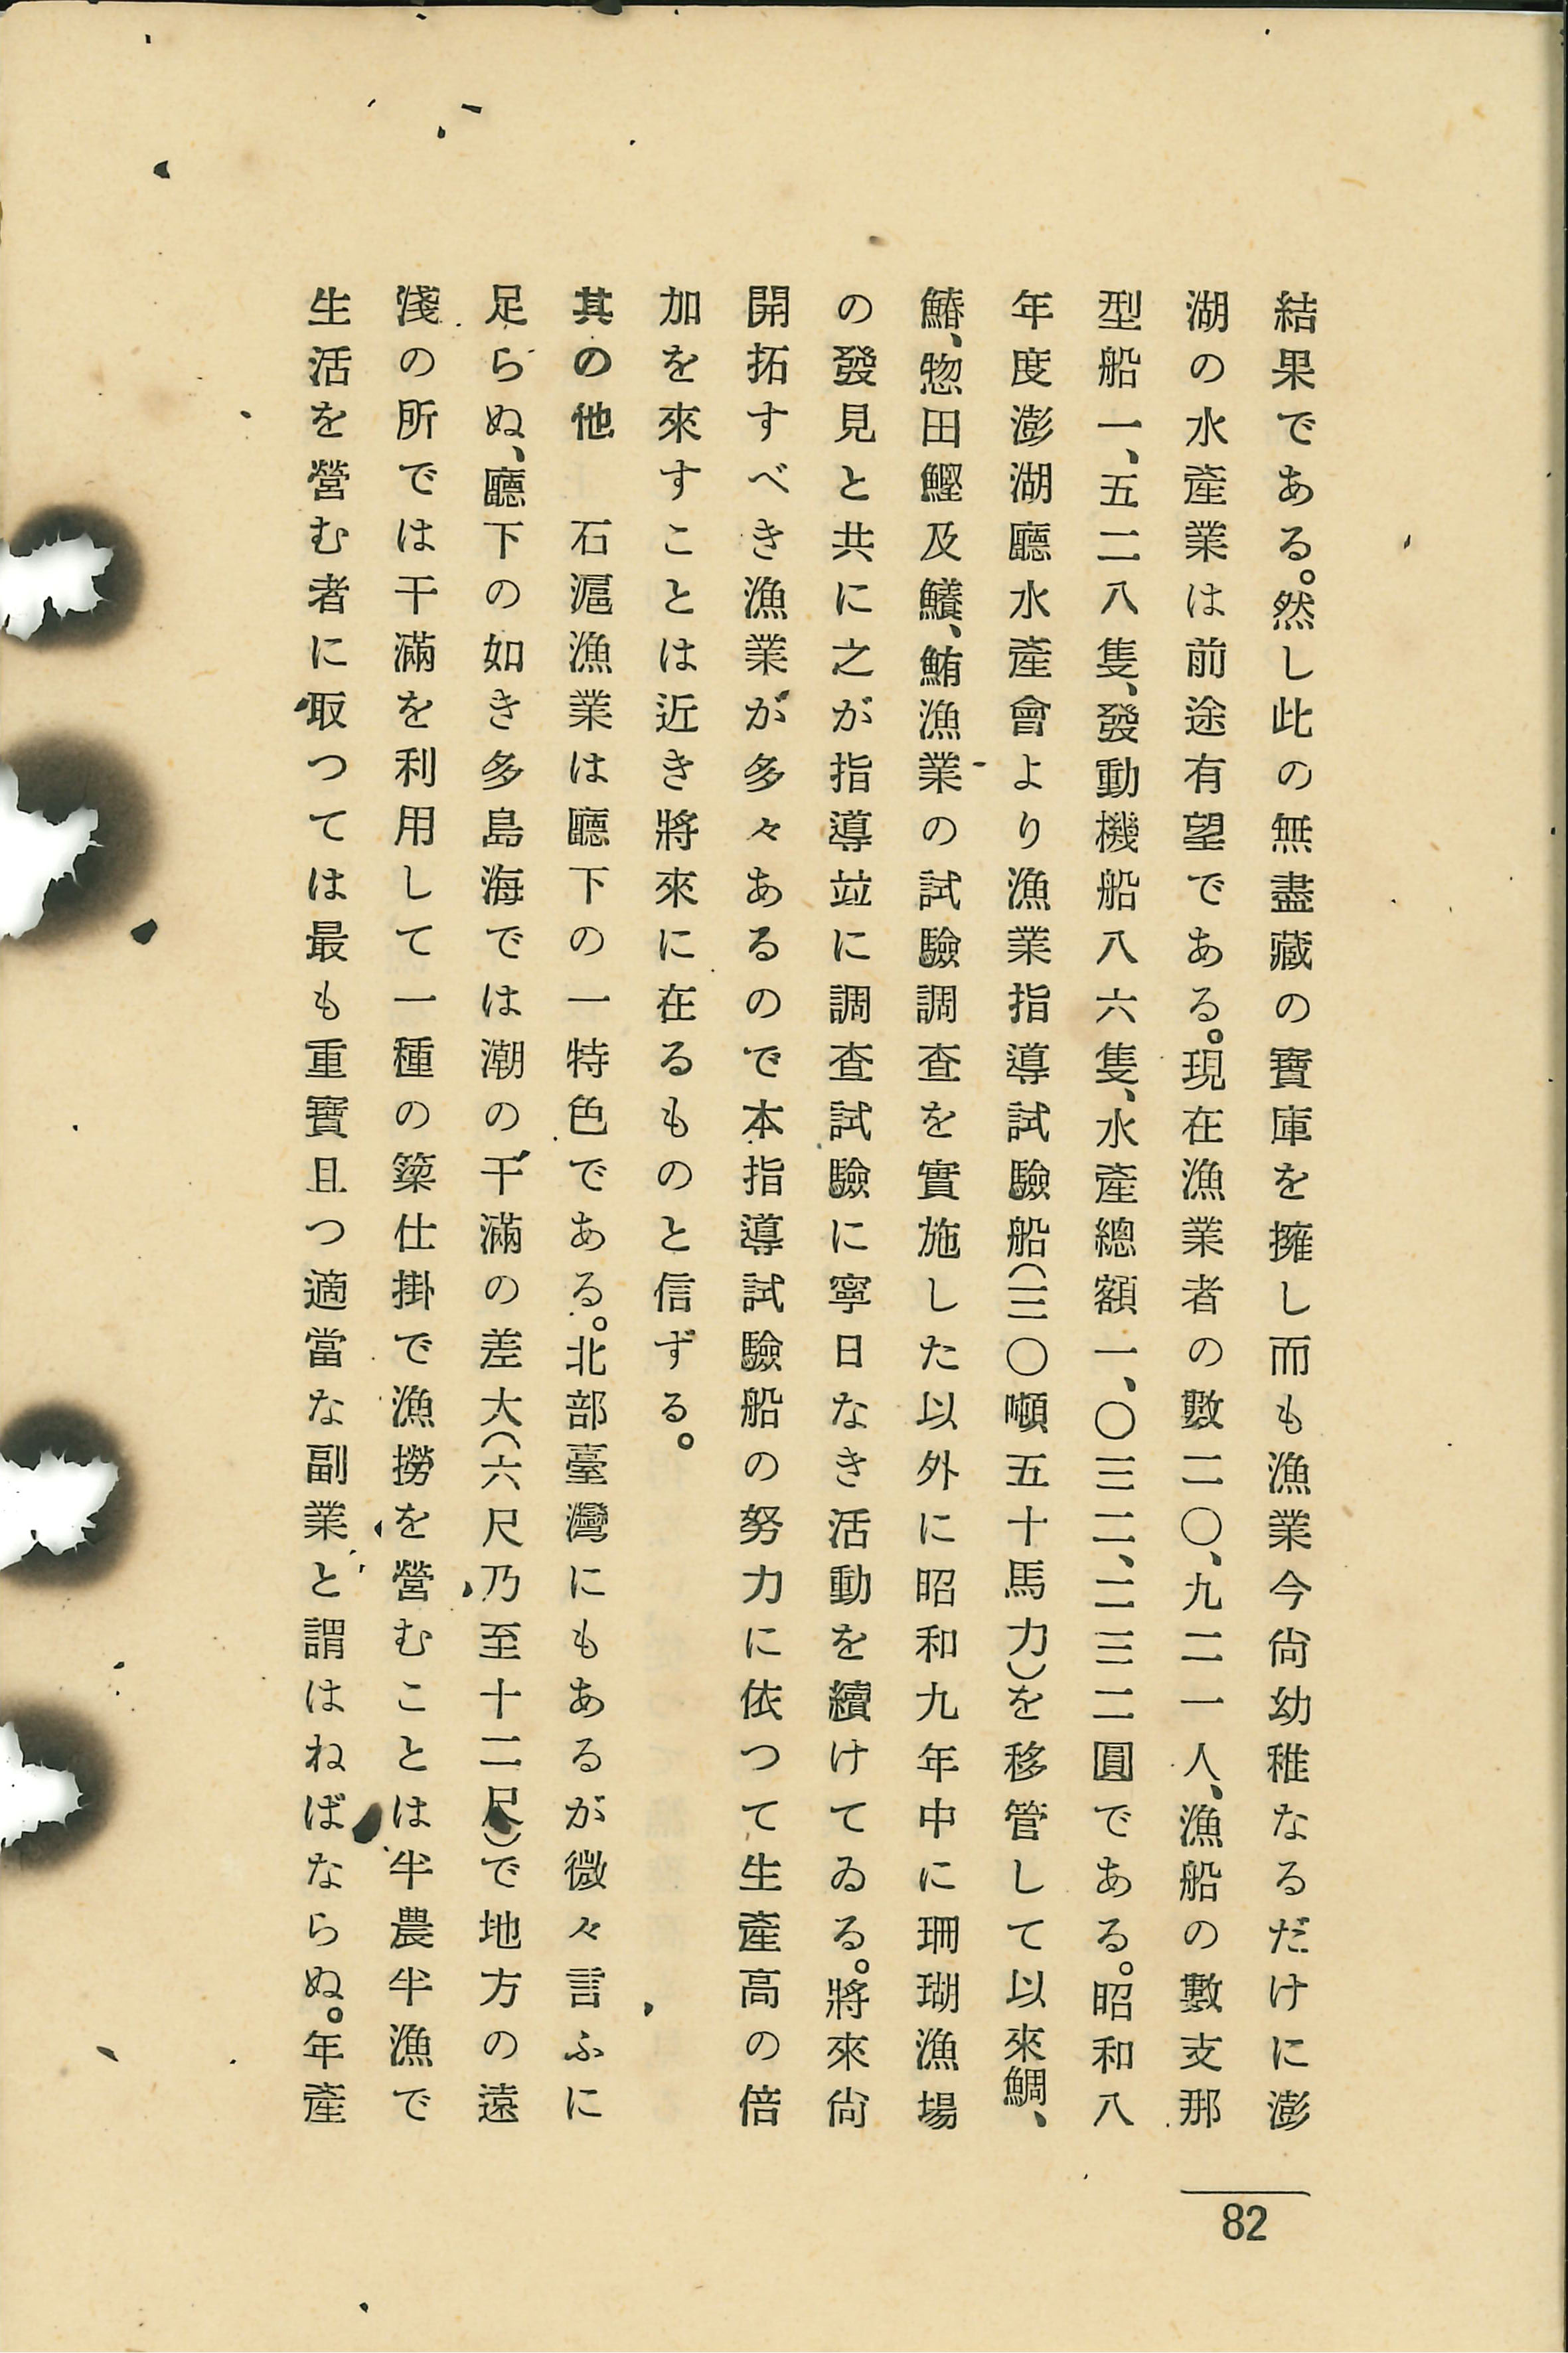 結果である。然し此の無盡藏の寶庫を擁し而も漁業今尙幼稚なるだけに澎
湖の水產業は前途有望である。現在漁業者の數二〇、九二一人、漁船の數支那
型船一、五二八隻、發動機船八六隻、水產總額一、〇三二、二三二圓である。昭和八
年度澎湖廳水產會より漁業指導試驗船(三〇噸五十馬力)を移管して以來鯛、
鰆、惣田鰹及鱶、鮪漁業の試驗調查を實施した以外に昭和九年中に珊瑚漁場
の發見と共に之が指導竝に調查試驗に寧日なき活動を續けてゐる。將來尙
開拓すべき漁業が多々あるので本指導試驗船の努力に依つて生產高の倍
加を來すことは近き將來に在るものと信ずる。
其の他 石滬漁業は廳下の一特色である。北部臺灣にもあるが微々言ふに
足らぬ、廳下の如き多島海では潮の干滿の差大(六尺乃至十二尺)で地方の遠
淺の所では干滿を利用して一種の簗仕掛で漁撈を營むことは半農半漁で
生活を營む者に取つては最も重寶且つ適當な副業と謂はねばならぬ。年產
82